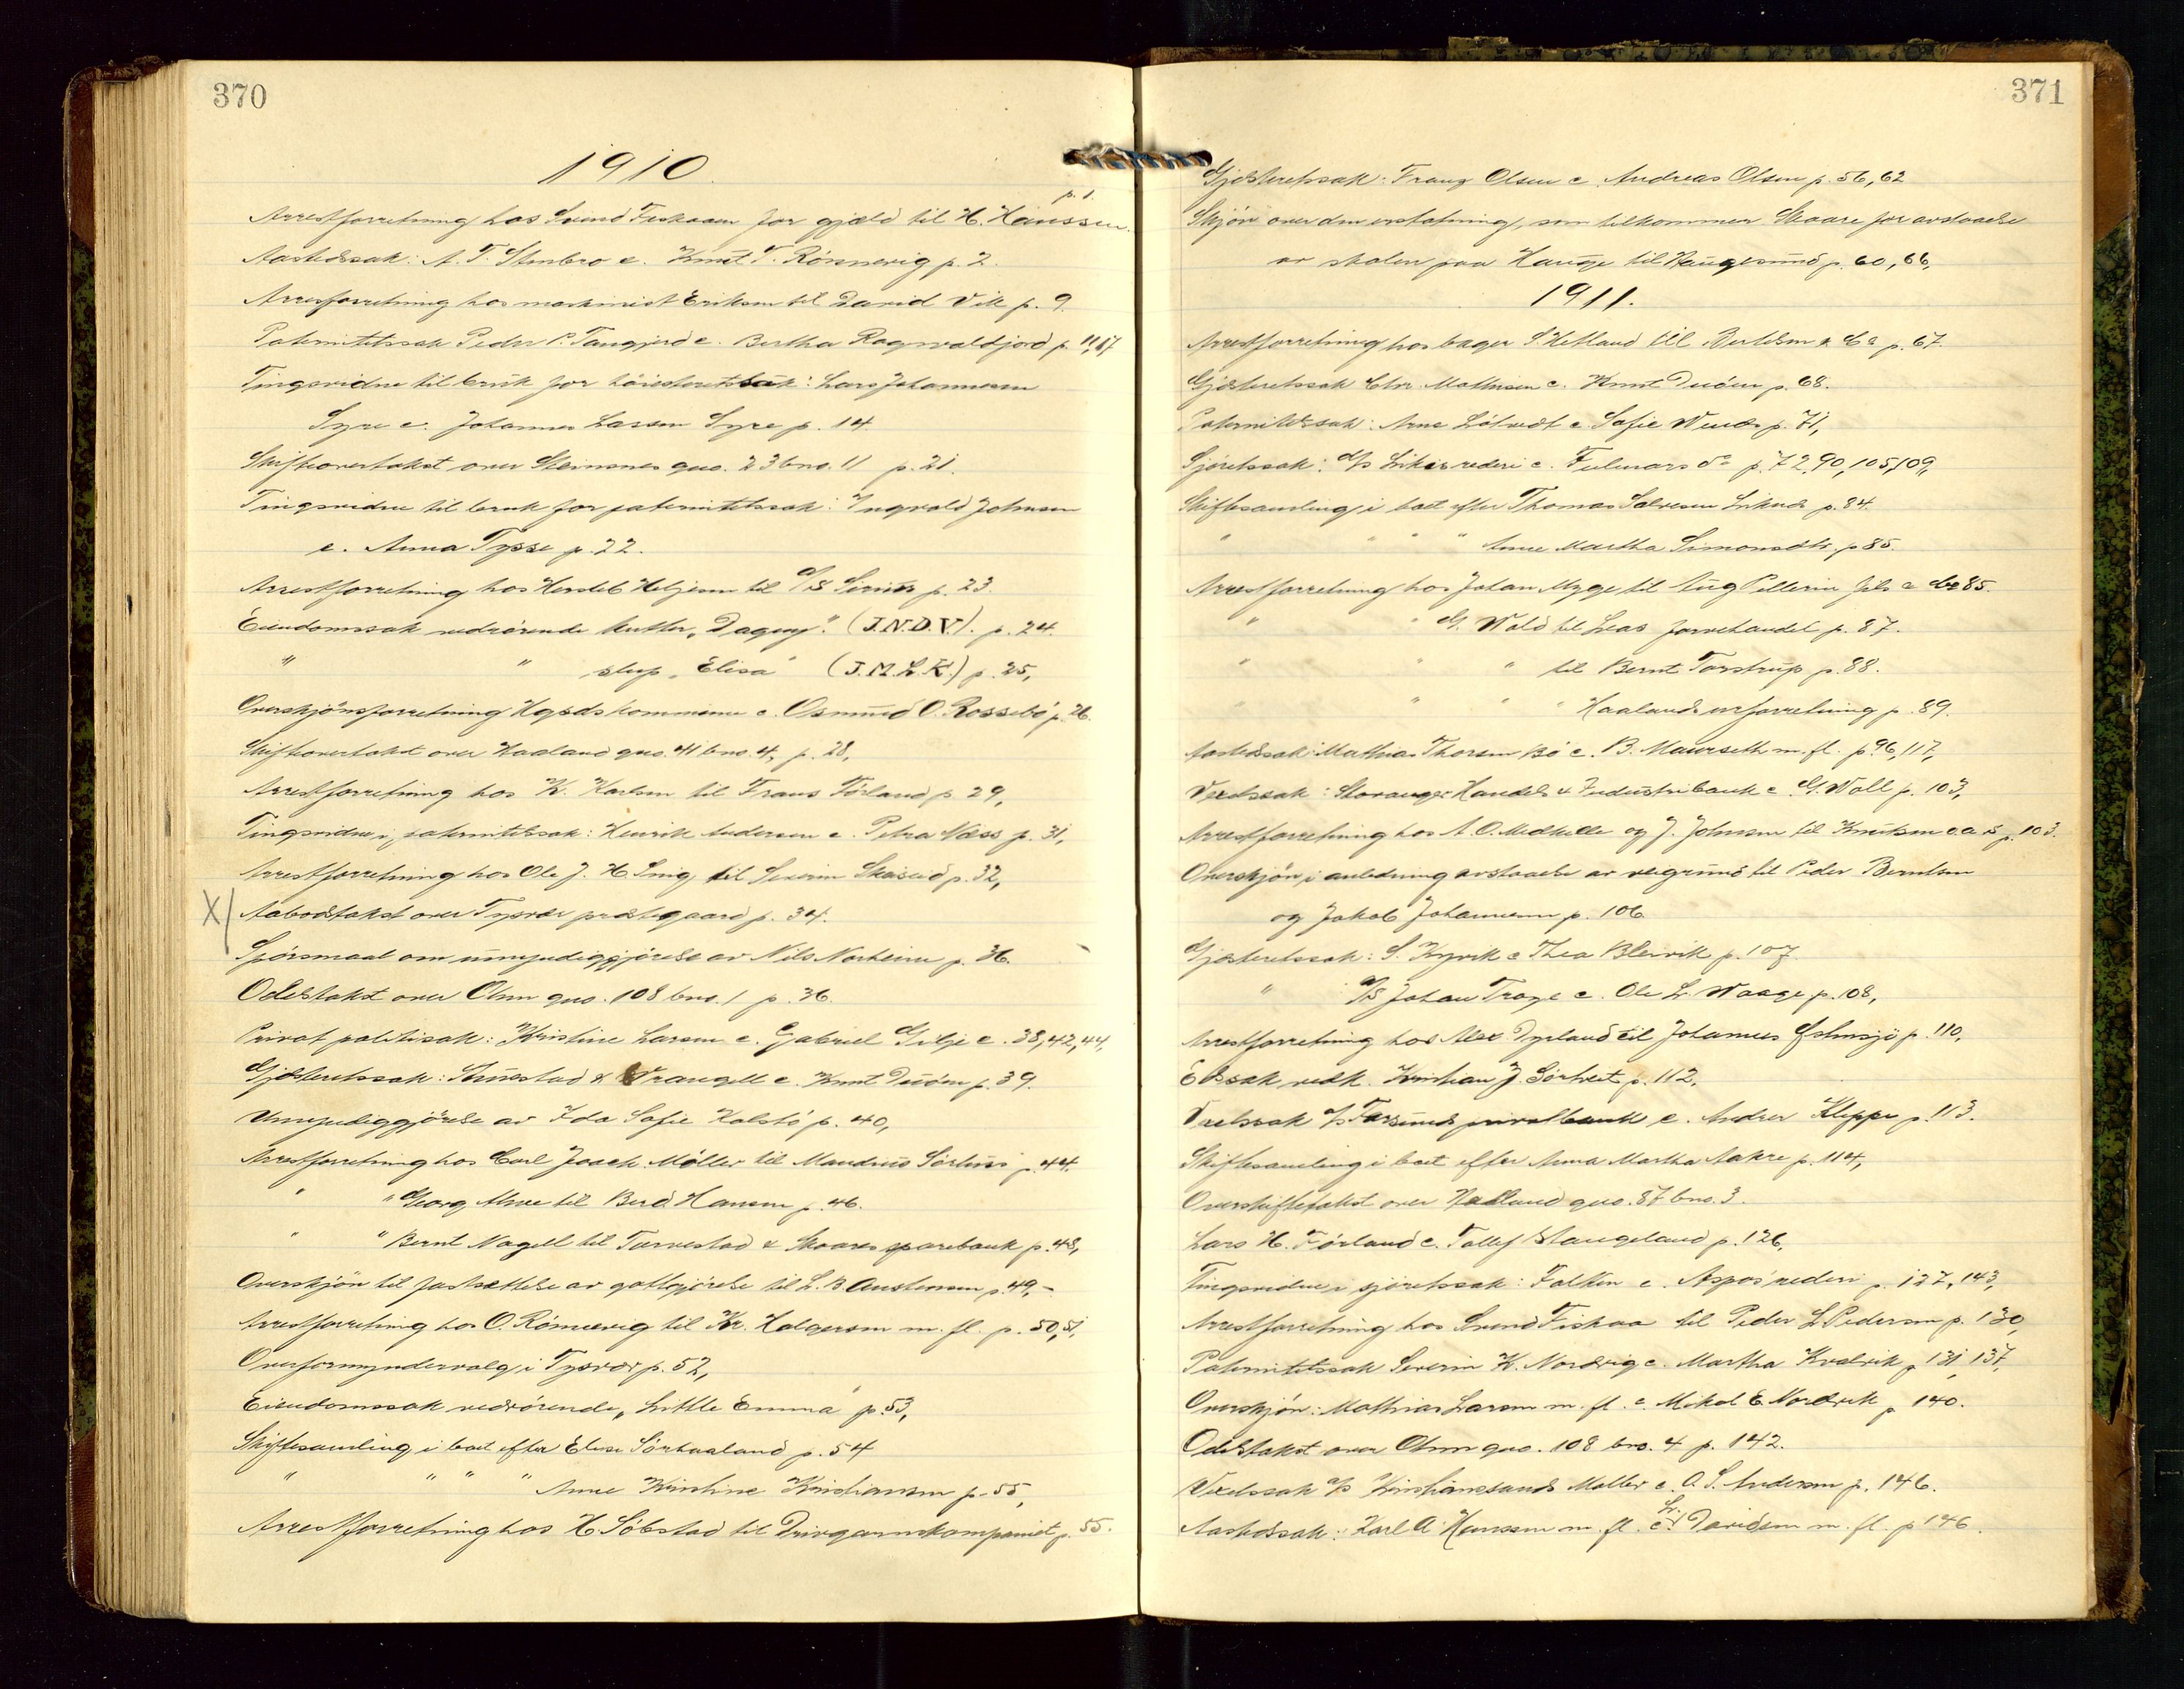 370
1910.
p. 1.
Arrestforretning hos Svend Fiskaaen for gjæld til H. Hanssen.
Aastedssak: A. T. Stenbro c. Knut T. Rörsnevig p. 2.
Arrestforretning hos maskinist Eriksen til David Vik p. 9.
Paternitetssak Peder P. Tangjerd c. Bertha Ragnvaldjord p. 11, 17
Tingsvidne til bruk for höiesteretssak: Lars Johannesen
Syre c. Johannes Larsen Syre p. 14.
Skifteovertakst over Steinsnes gno. 23 bno. 11 p. 21.
Tingsvidne til bruk for paternitetssak: Ingvald Johnsen
c. Anna Tysse p. 22.
Arrestforretning hos Hersleb Heljesen til A/S Sirius p. 23.
Eiendomssak vedrörende kutter "Dagny". (J.N.D.V.). p. 24.
" " slup "Elisa" (J.M.L.K.) p. 25,
Overskjönsforretning Hgsds kommune c. Osmund O. Rossebö p. 26.
Skifteovertakst over Haaland gno. 41 bno. 4, p. 28,
Arrestforretning hos K. Karlsen til Frans Förland p. 29,
Tingsvidne i paternitetssak: Henrik Andersen c. Petra Næss p. 31,
Arrestforretning hos Ole J. H. Sing til Severin p. 32,
X/ Aabodstakst over Tysvær prestegaard p. 34.
Spörsmaal om umyndiggjörelse av Nils Norheim p. 36.
Odelstakst over Ohm gno. 108 bno. 1 p. 36.
Privat politisak: Kristine Larsen c. Gabriel Gilje c. 38, 42, 44,
Gjesteretssak: & Wrangell c. Knut p. 39.
Umyndiggjörelse av Ida Sofie Kalstö p. 40,
Arrestforretning hos Carl Joach. Möller til p. 44.
" " Georg til Berd. Hansen p. 46.
" " Bernt Nagell til Torvestad & Skaares sparebank p. 48,
Overskjön til fastsættelse av godtgjörelse til L. B. Austensen p. 49, -
Arrestforretning hos O. Römnevig til Kr. Holgersen m. fl. p. 50, 51,
Overformyndervalg i Tysvær p. 52,
Eiendomssak vedrörende "Little Emma" p. 53,
Skiftesamling i boet efter Elise Sörhaaland p. 54
" " " " Anne Kristine Kristiansen p. 55,
Arrestforretning hos H. Söbstad til Drivgarnskompaniet p. 55.
371
Gjesteretssak: Franz Olsen c. Andreas Olsen p. 56, 62
Skjön over den erstatning, som tilkommer Skaare for avstaaelse
av skolen paa Hauge til Haugesund p. 60, 66,
1911.
Arrestforretning hos bager S. Hetland til Bertelsen & Co p. 67.
Gjesteretssak Chr. Mathisen c. Knut p. 68.
Paternitetssak: Arne Lötvedt c. Sofie p. 71,
Sjöretssak: D/S rederi c. Fulmars do p. 72, 90, 105, 109,
Skiftesamling i boet efter Thomas Salvesen p. 84.
" " " " Anne Martha Simonsdtr. p. 85.
Arrestforretning hos Johan Myge til Aug. Pellerin fils & Co 85.
" " G. Wold til Leas farvehandel p. 87.
" " " til Bernt Torstrup p. 88.
" " " Haalands urforretning p. 89.
Aastedssak Mathias Thorsen Bö c. B. Maurseth m. fl. p. 96, 117,
Vexelssak: Stavanger Handels & Industribank c. G. Woll p. 103,
Arrestforretning hos A. O. Medhelle og J. Johnsen til Knutsen O.A.S. p. 103.
Overskjön i anledning avstaaelse av veigrund til Peder Berntsen
og Jakob Johannesen p. 106.
Gjesteretssak: S. Kyvik c Thea Bleivik p. 107.
" A/S Johan Traye c. Ole L. Waage p. 108,
Arrestforretning hos Alex Dyrland til Johannes Østensjö p. 110,
Edssak vedk. Kristian J. Sörtveit p. 112,
Vexelssak A/S Farsunds privatbank c. Andrew Kleppe p. 113.
Skiftesamling i boet efter Anna Martha Aakre p. 114,
Overskiftetakst over Hadland gno. 87 bno. 3.
Lars H. Förland c. Tollef Stangeland p. 126,
Tingsvidne i sjöretssak: Falken c. Aspös rederi p. 127, 143,
Arrestforretning hos Svend Fiskaa til Peder L. Pedersen p. 130,
Paternitetssak Severin K. Nordvig c. Martha Kvalvik p. 131, 137,
Overskjön: Mathias Larsen m. fl. c. Mikal E. Nordvik p. 140.
Odelstakst over Ohm gno. 108 bno. 4 p. 142.
Vexelssak A/S Kristianssands Möller c. O. S. Andersen p. 146.
Aastedssak: Karl A. Hanssen m. fl. c. Sv. Davidsen m. fl. p. 146.